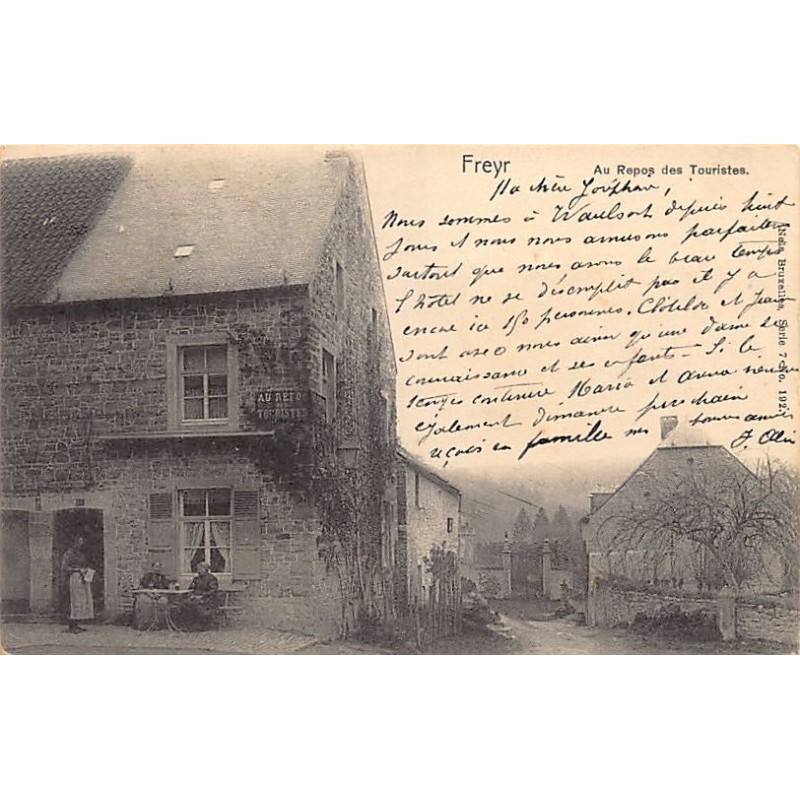 Freyr
Au Repos des Touristes.
Ma chère
Nous sommes à Waulsort depuis huit
jours et nous nous amusons parfaitement
surtout que nous avons le beau temps
l'hôtel ne se désemplit pas il y a
encore ici 150 personnes. Clotilde et Jean
sont avec nous ainsi qu'une dame de
connaissance et ses enfants - Si le
temps continue, Maria et
également dimanche prochain
reçois en famille nos bonnes amitiés
Nels, Bruxelles, Serie 7 No. 192.
AU REPOS
DES TOURISTES